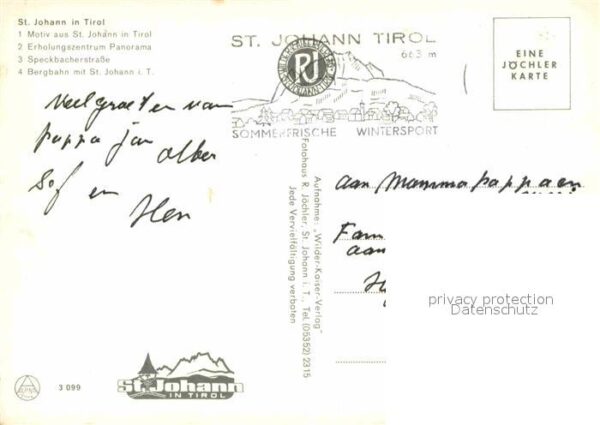 St. Johann in Tirol
1 Motiv aus St. Johann in Tirol
2 Erholungszentrum Panorama
3 Speckbacherstraße
4 Bergbahn mit St. Johann i. T.
ST. JOHANN TIROL
663 m
RJ
SOMMERFRISCHE WINTERSPORT
EINE
JÖCHLER
KARTE
van
pappa jan
Sof en
aan Mamma pappa en
Fam
aan
Aufnahme: „Wilder-Kaiser-Verlag"
Fotohaus R. Jöchler, St. Johann i. T., Tel. (05352) 2315
Jede Vervielfältigung verboten
privacy protection
Datenschutz
3 099
St. Johann
IN TIROL